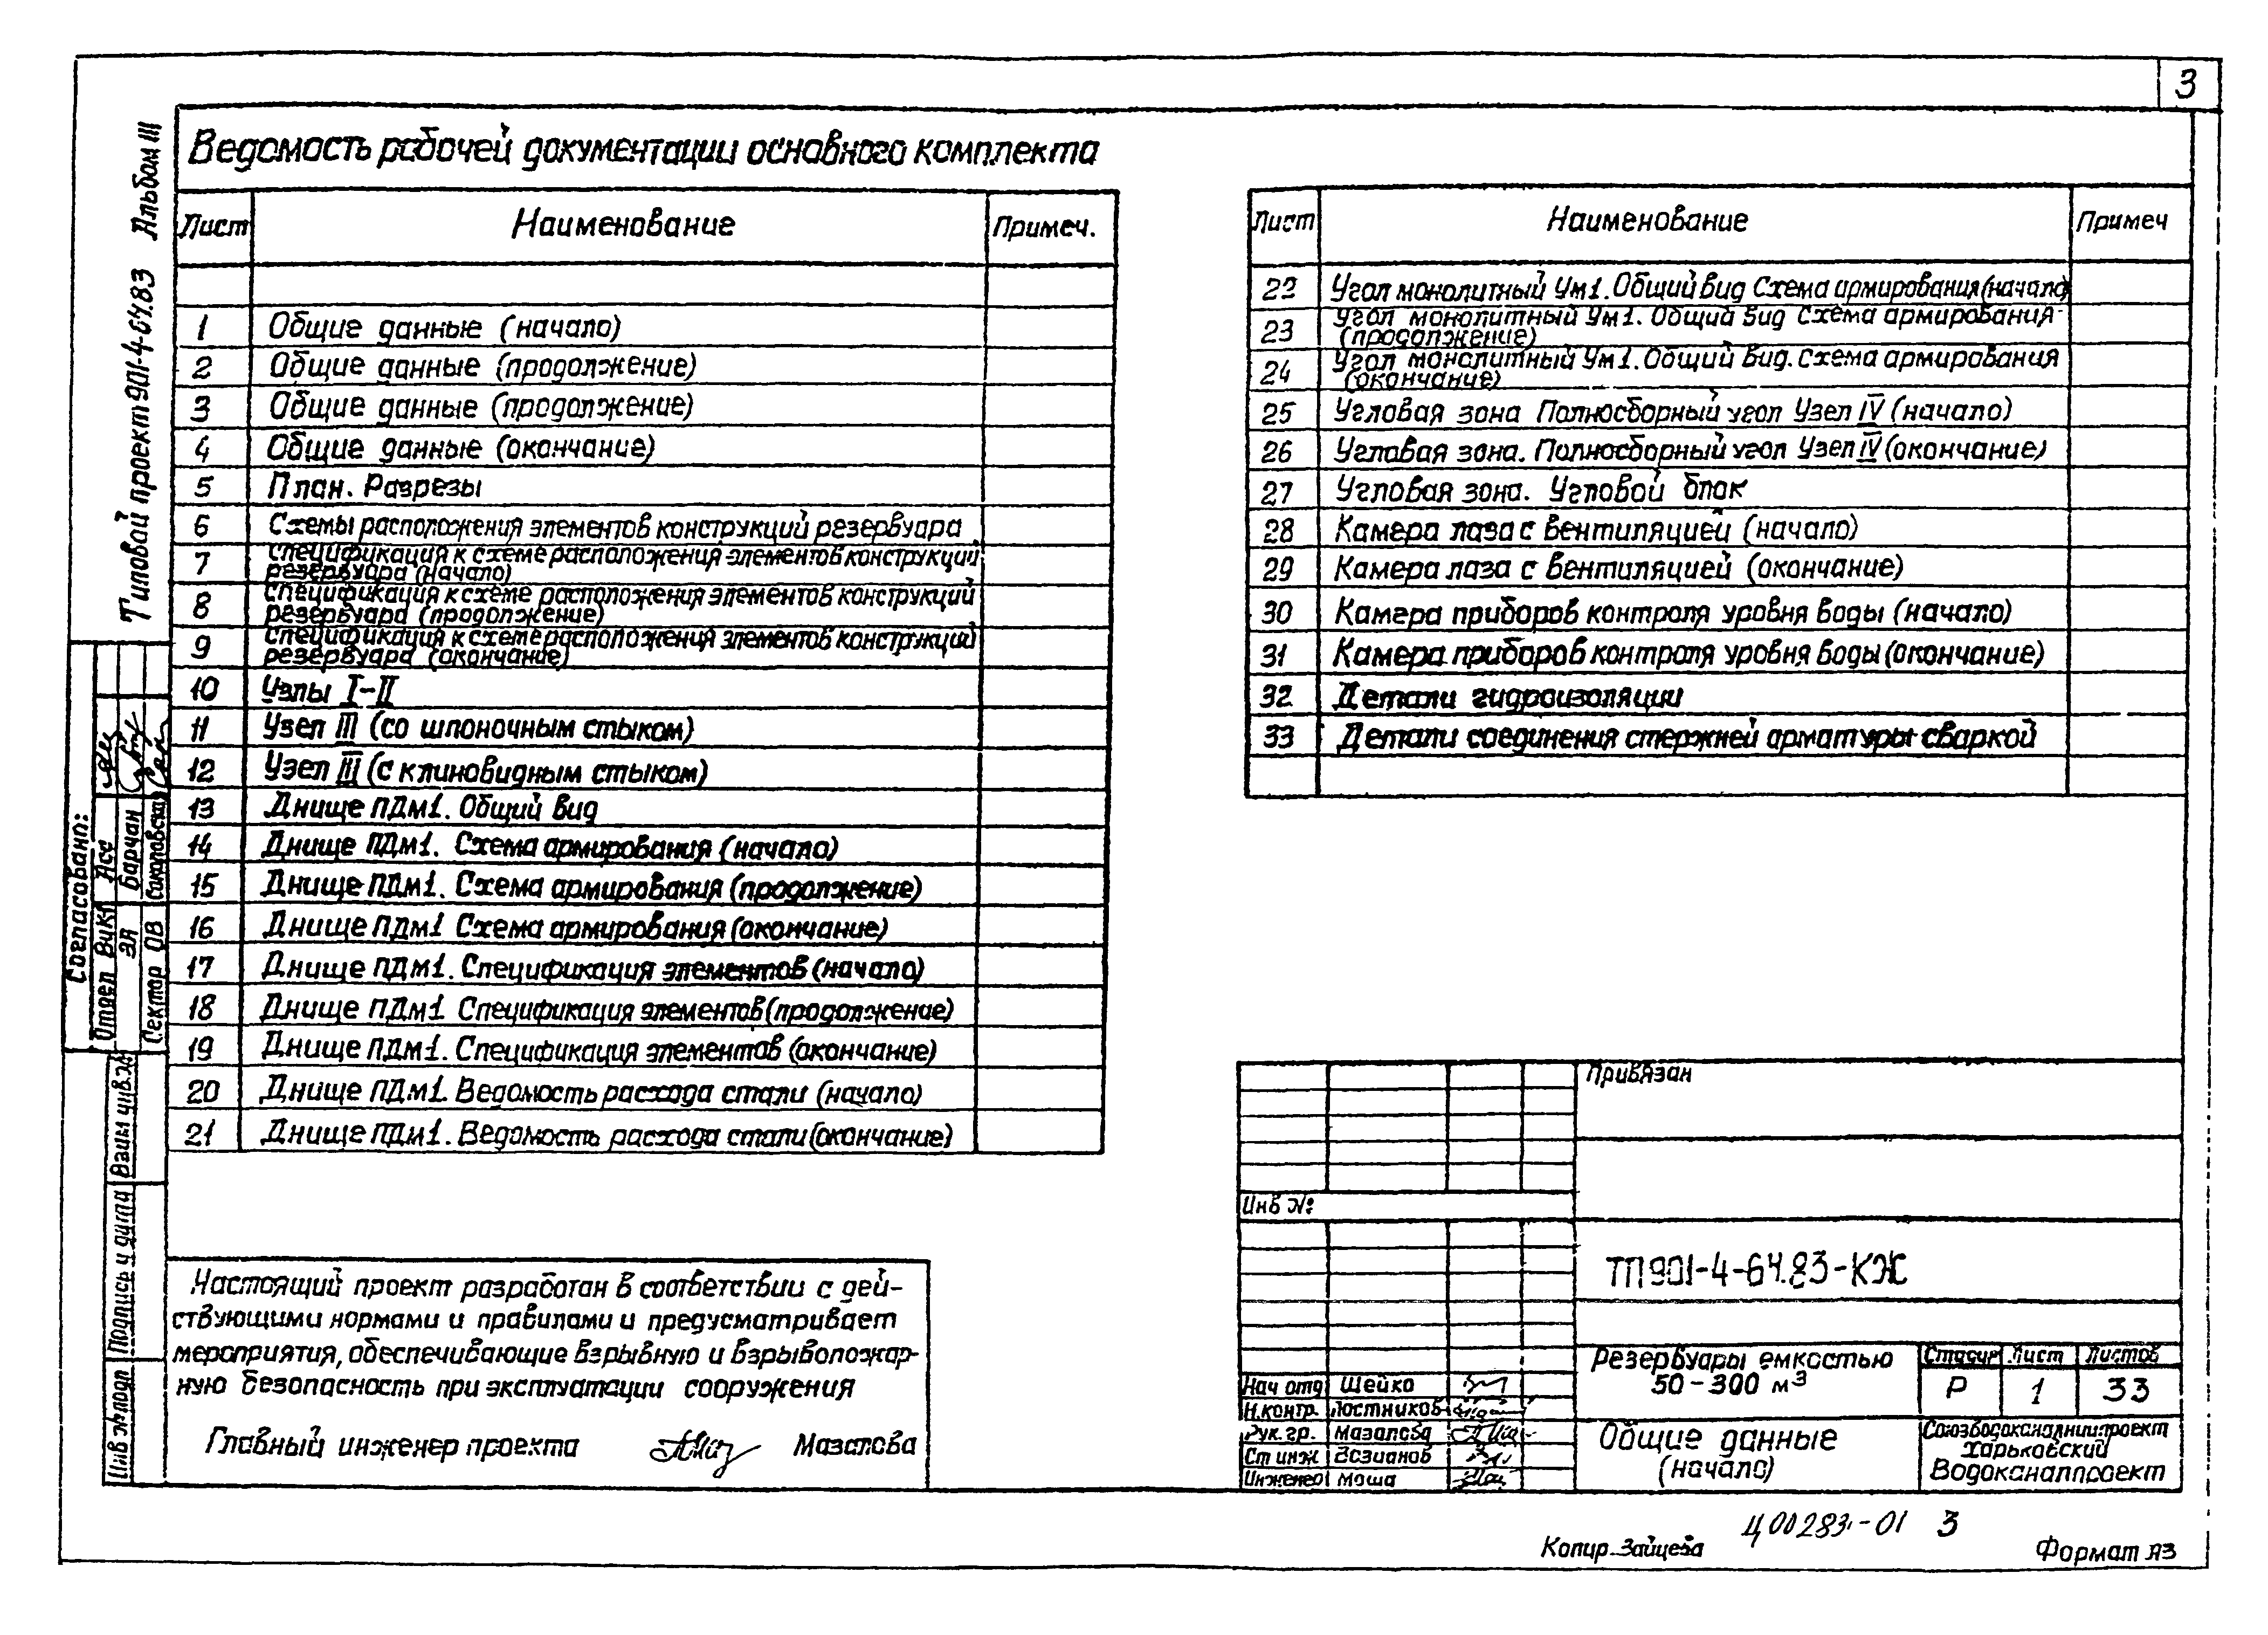 3
Типовой проект 901-4-64.83 Альбом III
Ведомость рабочей документации основного комплекта
Лист Наименование Примеч.
1 Общие данные (начало)
2 Общие данные (продолжение)
3 Общие данные (продолжение)
4 Общие данные (окончание)
5 План. Разрезы
6 Схемы расположения элементов конструкций резервуара
7 Спецификация к схеме расположения элементов конструкций
резервуара (начало)
8 Спецификация к схеме расположения элементов конструкций
резервуара (продолжение)
9 Спецификация к схеме расположения элементов конструкций
резервуара (окончание)
10 Узлы I-II
11 Узел III (со шпоночным стыком)
12 Узел III (с клиновидным стыком)
13 Днище ПДм1. Общий вид
14 Днище ПДм1. Схема армирования (начало)
15 Днище ПДм1. Схема армирования (продолжение)
16 Днище ПДм1 Схема армирования (окончание)
17 Днище ПДм1. Спецификация элементов (начало)
18 Днище ПДм1 Спецификация элементов (продолжение)
19 Днище ПДм1. Спецификация элементов (окончание)
20 Днище ПДм1. Ведомость расхода стали (начало)
21 Днище ПДм1. Ведомость расхода стали (окончание)
Лист Наименование Примеч
22 Угол монолитный Ум1. Общий вид Схема армирования (начало)
23 Угол монолитный Ум1. Общий вид Схема армирования
(продолжение)
24 Угол монолитный Ум1. Общий вид. Схема армирования
(окончание)
25 Угловая зона Полносборный угол Узел IV (начало)
26 Угловая зона. Полносборный угол Узел IV (окончание)
27 Угловая зона. Угловой блок
28 Камера лаза с вентиляцией (начало)
29 Камера лаза с вентиляцией (окончание)
30 Камера приборов контроля уровня воды (начало)
31 Камера приборов контроля уровня воды (окончание)
32 Детали гидроизоляции
33 Детали соединения стержней арматуры сваркой
Согласовано:
Отдел ВиК1 Асс
ЭЛ Барчан
Сектор ОВ Соколовская
Взам инв.№
Подпись и дата
Инв № подл
Настоящий проект разработан в соответствии с дей-
ствующими нормами и правилами и предусматривает
мероприятия, обеспечивающие взрывную и взрывопожар-
ную безопасность при эксплуатации сооружения
Главный инженер проекта Мазалова
Привязан
Инв №:
ТП 901-4-64.83-КЖ
Резервуары емкостью
50-300 м³
Стадия Лист Листов
Р 1 33
Нач отд Шейко
Н.контр. Постников
Рук.гр. Мазалова
Ст инж Возианов
Инженер Маша
Общие данные
(начало)
Союзводоканалниипроект
Харьковский
Водоканалпроект
Ц00283-01 3
Копир. Зайцева
Формат А3